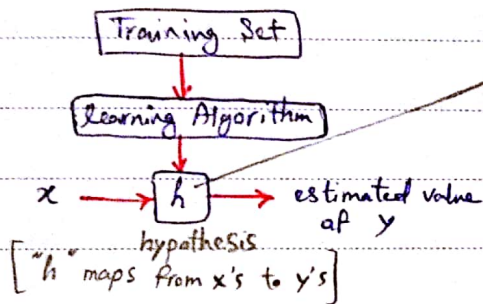 Training Set
Learning Algorithm
x h estimated value
of y
hypothesis
["h" maps from x's to y's]